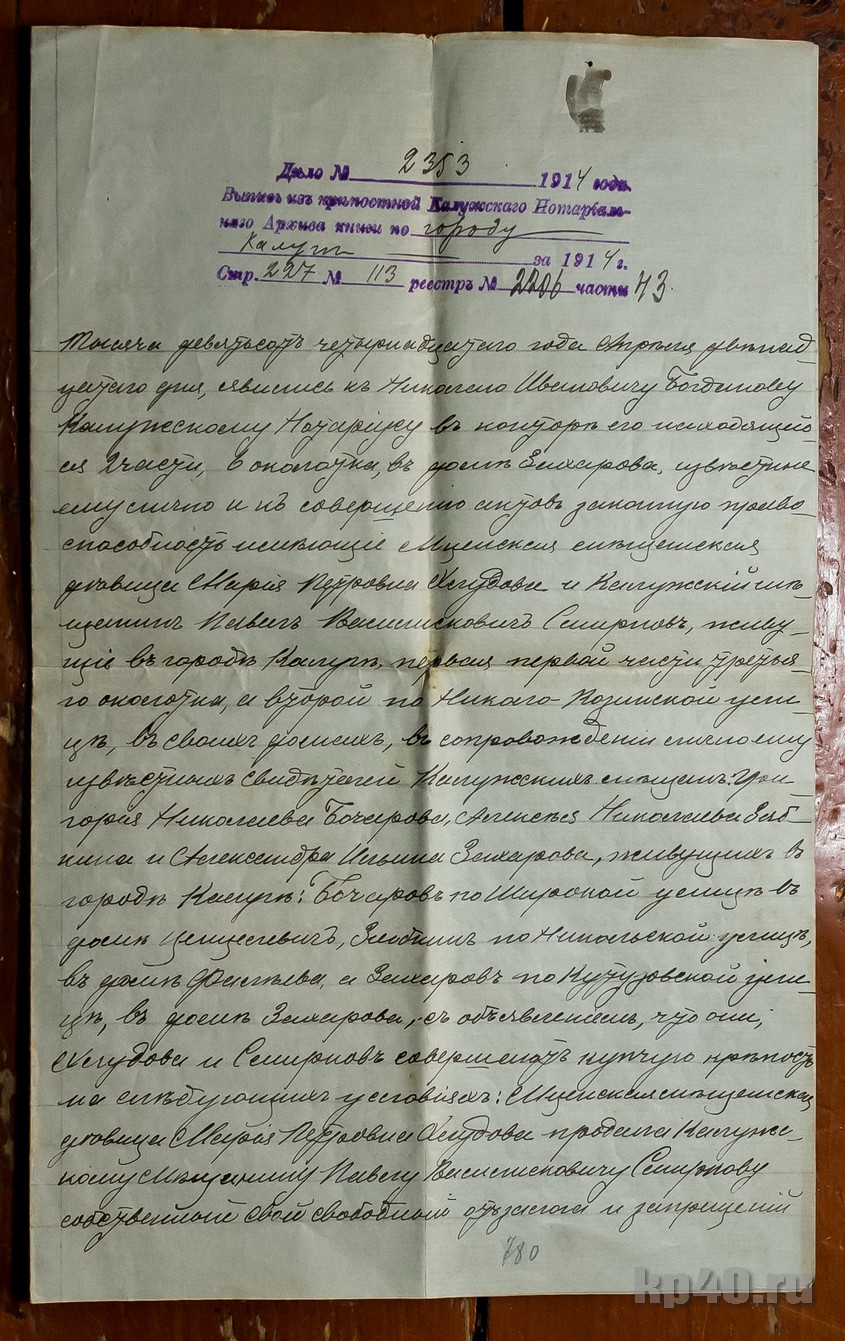 Дѣло № 2353 1914 года.
Выпись изъ крѣпостной Калужскаго Нотаріаль-
наго Архива книги по городу
Калугѣ за 1914 г.
Стр. 227 № 113 реестръ № 2206 части 43.
Тысяча девятьсотъ четырнадцатаго года Апрѣля двѣнад-
цатаго дня, явились къ Николаю Ивановичу Богданову
Калужскому Нотаріусу въ конторѣ его находящей-
ся 2 части, 6 околотка, въ домѣ Захарова, извѣстные
ему лично и къ совершенію актовъ законную право-
способность имѣющіе Мценская мѣщанская
дѣвица Марія Петровна Хлудова и Калужскій мѣ-
щанинъ Павелъ Василисковичъ Смирновъ, живу-
щіе въ городѣ Калугѣ, первая первой части третья-
го околотка, а второй по Николо-Козинской ули-
цѣ, въ своихъ домахъ, въ сопровожденіи лично ему
извѣстныхъ свидѣтелей Калужскихъ мѣщанъ: Гри-
горія Николаева Бочарова, Алексѣя Николаева Зяб-
кина и Александра Ильина Захарова, живущихъ въ
городѣ Калугѣ: Бочаровъ по Широкой улицѣ въ
домѣ по Никольской улицѣ,
въ домѣ а Захаровъ по Кутузовской ули-
цѣ, въ домѣ Захарова, съ объявленіемъ, что они,
Хлудова и Смирновъ совершаютъ купчую крѣпость
на слѣдующихъ условіяхъ: Мценская мѣщанская
дѣвица Марія Петровна Хлудова продала Калуж-
скому мѣщанину Павлу Василисковичу Смирнову
собственный свой свободный отъ залога и запрещеній
780
kp40.ru